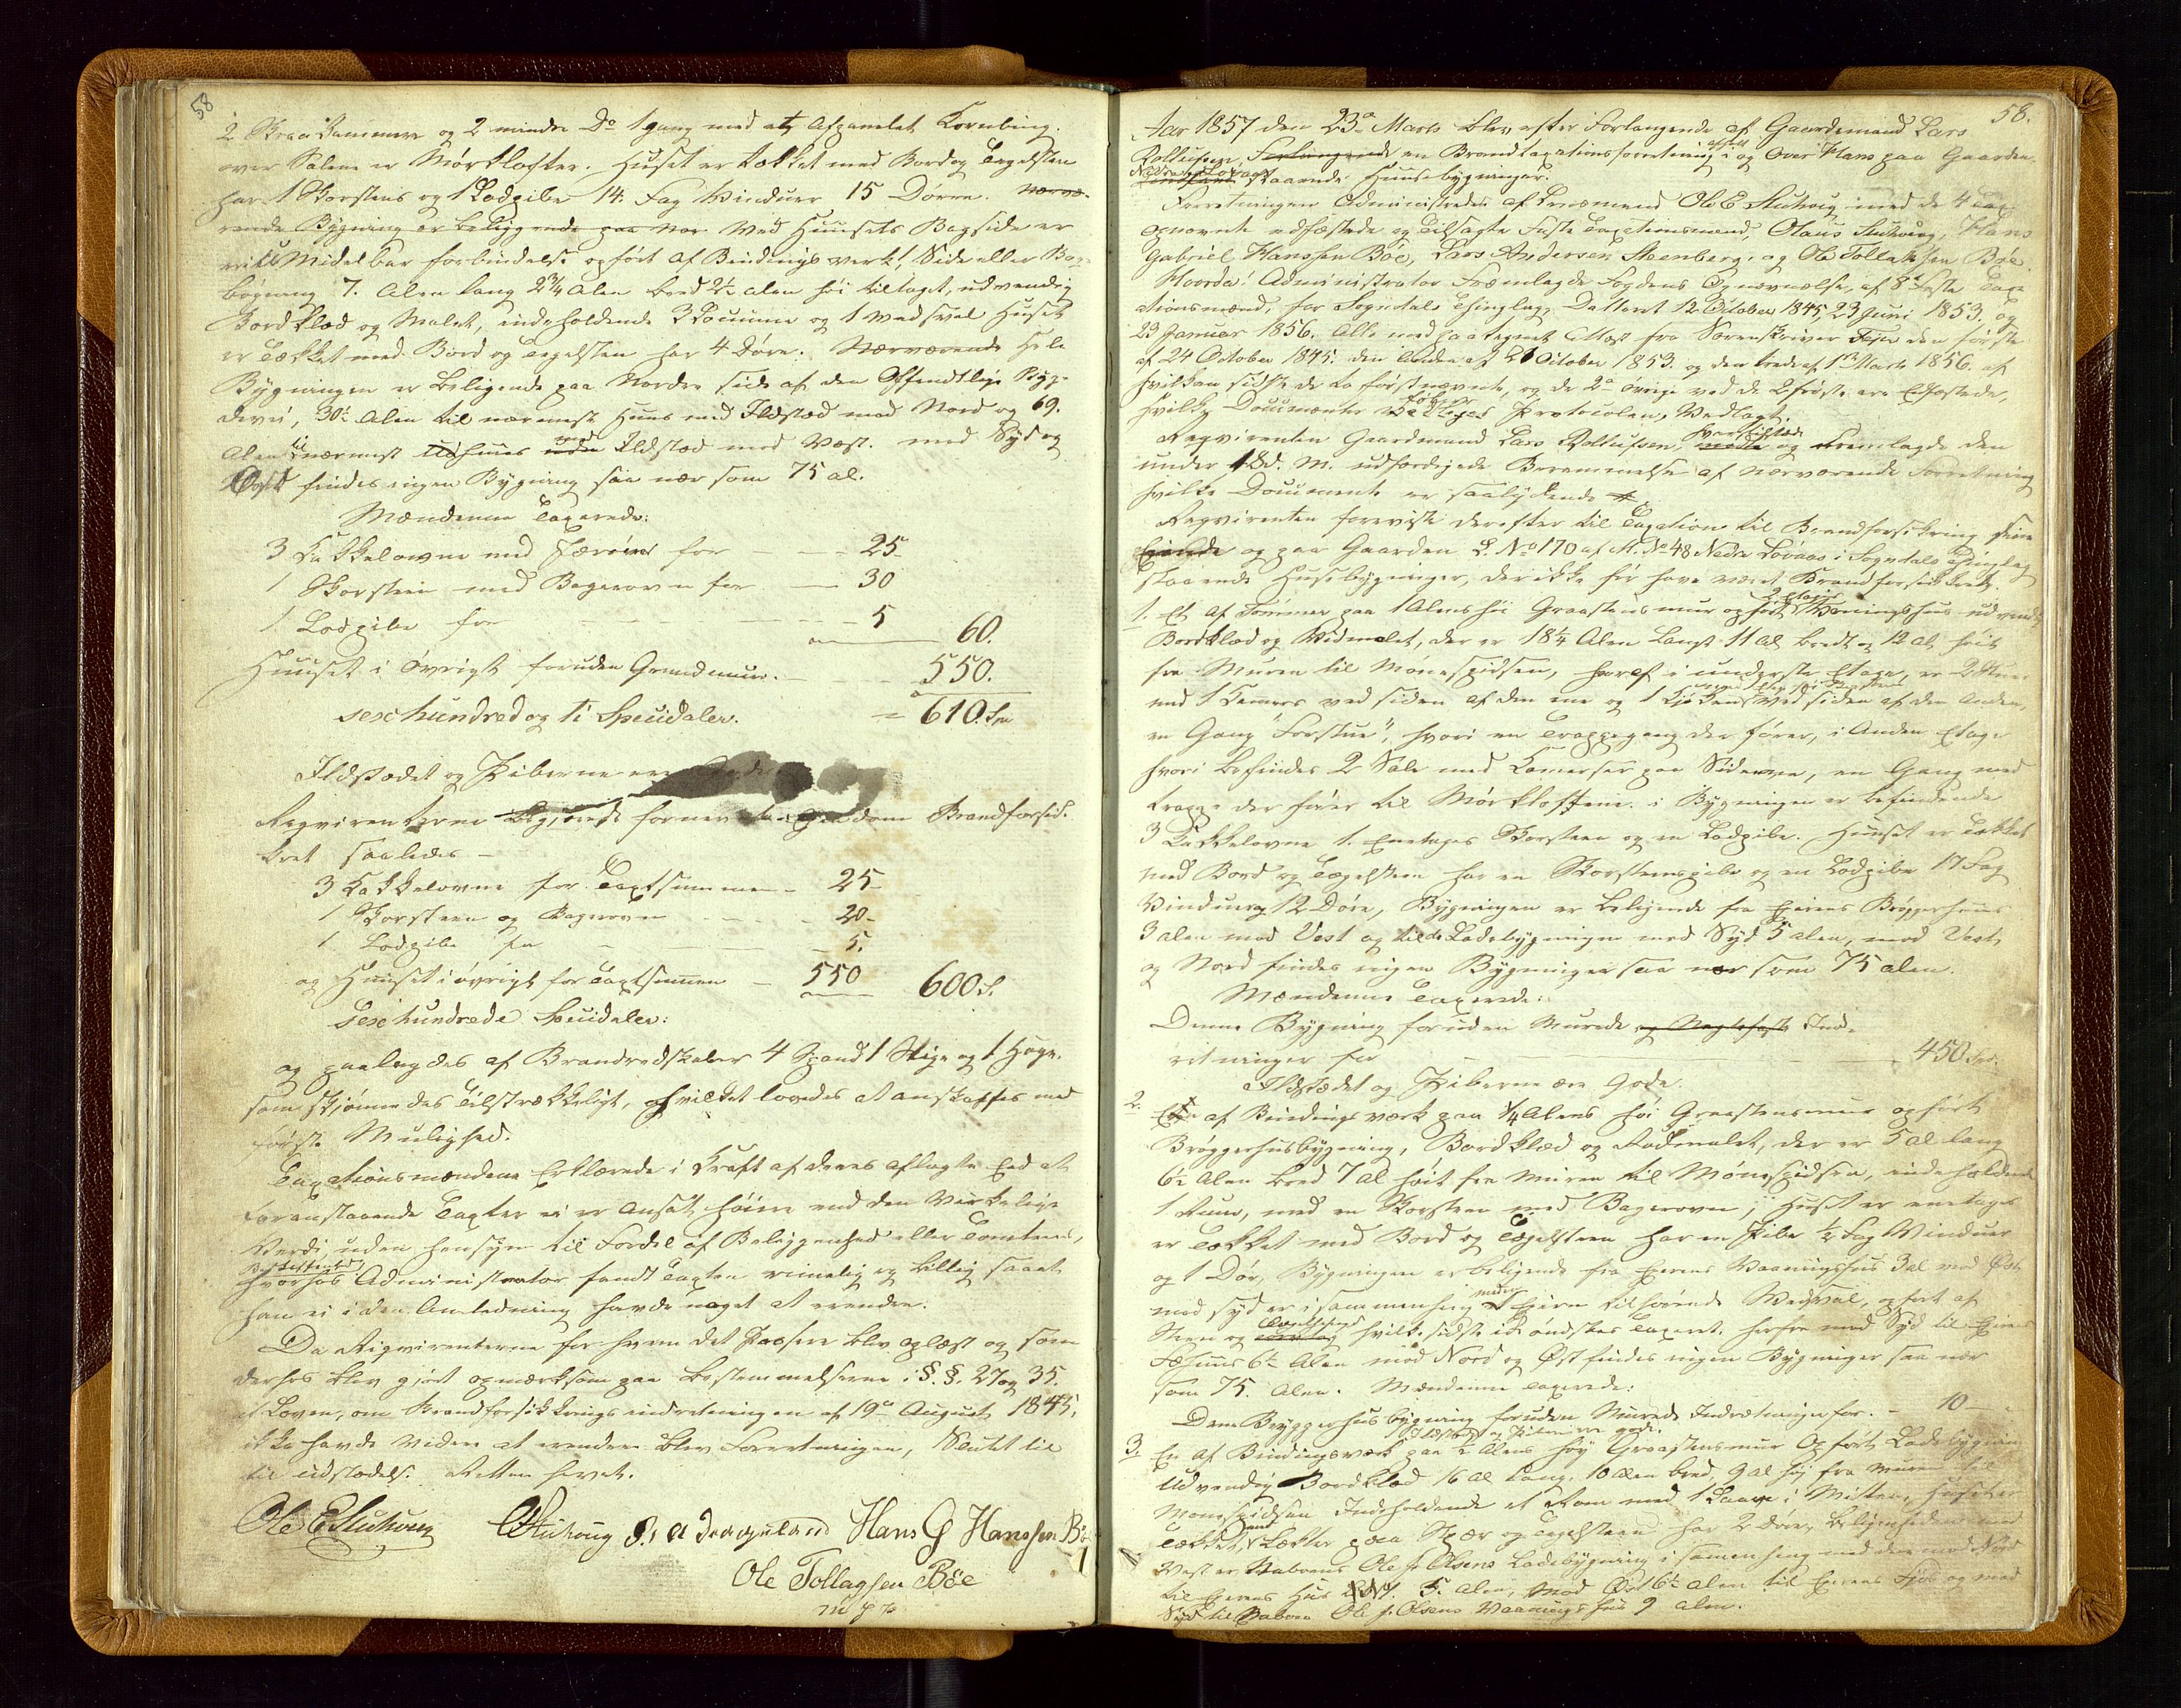 58
2 Kammere og 2 mindre Do 1 gang med et Afpanelet
over Salene er Mørklofter. Huset er tækket med Bord og Tegelsten
har 1 Skorstens og 1 Lodpibe 14 Fag Vinduer 15 Dørre. Nærvæ-
rende Bygning er beliggende paa Nor Ved Huusets Bagside er
Midelbar forbindelse opført af Bindingsverk! Side eller
bygning 7. Alen lang 2¾ Alen bred 2½ alen høi til taget, udvendig
Bordklæd og Malet, indeholdende 3 og 1 Huset
er Tækket med Bord og Tegelsten har 4 Døre. Nærværende Hele
Bygningen er beligende paa Nordre side af den Offendtlige
30½ Alen til nærmeste Huus med Ildsted mod Nord og 69.
Alen til nærmest Udhuus uden med Ildsted mod Vest. mod Syd og
Øst findes ingen Bygning saa nær som 75 al.
Mændenne Taxerede:
3 Kakkelovne med for 25
1 Skorsteen med Bagerovn for 30
1 Lodpibe for 5 60.
Huuset i øvrigt foruden Grundmuur. 550.
sexhundred og ti Speeidaler. = 610.
Ildstædet og Piberne ere
Reqvirenterne Begjærede Brandforsik-
kret saaledes -
3 Kakkelovne for Taxtsummen - 25
1 Skorsteen og Bagerovn 20-
1 Lodpibe for 5.
og Huuset i øvrigt for Taxtsummen - 550 600 S.
Sexhundrede Speeidaler:
og paalagdes af Brandredskaber 4 Spand 1 Stige og 1 Hage.
som skjønnedes Tilstrækkeligt, hvilket lovedes at anskaffes med
første Mulighed.
Taxationsmændene Erklærede i Kraft af deres aflagte Eed at
Foranstaaende Taxter ei er Ansat høiere end den Virkelige
Verdi, uden hensyn til Fordel af Beliggenhed eller
hvorhos Administrator fandt Taxten rimelig og billig saaat
han ei i den Anledning havde noget at erendre.
Da Reqvirenterne for hvem det Passere blev oplæst og som
derhos blev gjort opmærksom paa Bestemmelserne i §.§. 27 og 35.
i Loven, om Brandforsikkringsindretningen af 19de August 1845,
ikke havde videre at erendre blev Forretningen, Sluttet til
til udstædelse. Retten hævet.
Ole E Stuhoug O Stuhoug P. A Dragsland Hans G Hanssen Bø
Ole Tollagsen Bøe
m p p
58.
Aar 1857 den 23de Marts blev efter Forlangende af Gaardemand Lars
Rolliefsen, Forlangende en Brandtaxationsforretning afholdt i og Over Hans paa Gaarden
Nedre Lovaas staaende Huusebygninger.
Forretningen Administredes af Lensmand Ole E Stuhoug med de 4 Lov-
opnevnte edfæstede og Tilsagte Faste Taxationsmænd, Olaus Stuhoug, Hans
Gabriel Hanssen Bøe, Lars Andersen Steenberg, og Ole Tollaksen Bøe.
Hvorda! Administrator Fremlagde Fogdens Opnævnelse, af 8 Faste Taxa-
ationsmænd, for Sogndals Thinglag, Datteret 12 October 1845, 23 Juni 1853. og
23 Januar 1856. Alle med paategnet Attest fra Sorenskriver Feyer den første
af 24 October 1845. den Anden af 21 October 1853. og den tredie af 1ste Marts 1856. af
hvilken sidste de to førstnævnte, og de 2de øvrige ved de 2 første ere Edfæstede,
hvilke Documenter Protocolen, Vedlagt.
Reqvirenten Gaardmand Lars Rolliefsen, og Fremlagde den
under 18 d. M. udfærdigede Berammelse af nærværende Forretning
hvilke Document er saalydende
Reqvirenten foreviste derefter til Taxation til Brandforsikring sine
Eiende og paa Gaarden L. No 170 af M. No 48 Nedre Lovaas i Sogndals Thinglag
staaende Husebygninger, der ikke før have været Brandforsikkrede.
1. Et af Tømmer paa 1 Alens høi Graastensmur opført 2 etages Vaaningshuus udvendig
Bordklæd og Vidmalet, der er 18¼ Alen Langt 11 al bredt og 12 al høit
fra Muren til Mønespidsen, hvoraf i underste Etage, er 2 Stuer
med 1 Kammers ved siden af den ene og 1 Kjøken ved siden af den anden,
en Gang "Forstue", hvori en Trappegang der fører, i Anden Etage
hvori befindes 2 Sale med Kamerser paa Siderne, en Gang med
trappe der fører til Mørkloftene. i Bygningen er befindende
3 Kakkelovne 1. Skorsteen og en Lodpibe. Huuset er Tækket
med Bord og Tegelsteen har en Skorstenspibe og en Lodpibe 17 Fag
Vinduer og 12 Døre, Bygningen er beligende fra Eierens Bryggerhuus
3 alen mod Vest og til Ladebygningen mod Syd 5 alen, mod Vest
og Nord findes ingen Bygninger saa nær som 75 alen.
Mændenne Taxerede:
Denne Bygning foruden Murede og Naglefaste Ind-
retninger for 450 Spd.
Ildstædet og Piberne ere Gode.
2. Et af Bindingsværk paa ¼ Alens høi Graastensmur opført
Bryggerhusbygning, Bordklæd og Rødmalet, der er 5 al lang
6½ Alen bred 7 al høit fra Muren til Mønespidsen, indeholdende
1 Rum, med en Skorsteen med Bagerovn; Huset er eenetages
er Tækket med Bord og Tegelsteen har en Pibe ½ Fag Vinduer
og 1 Dør, Bygningen er beligende fra Eierens Vaaningshus 3 al mod Øst
mod syd er i sammenheng med Eieren tilhørende Vedsval, opført af
Steen og hvilke sidste ei ønskes Taxeret. herfra mod Syd til Eierens
Fæhuus 6½ Alen mod Nord og Øst findes ingen Bygninger saa nær
som 75. Alen. Mændenne Taxerede:
Denne Bryggerhusbygning foruden Murede Indretninger for. - 10 -
Ildstedet og Piberne ere gode.
3. En af Bindingsværk paa ½ Alens høy Graastensmur Opført Ladebygning
Udvendig Bordklæd 16 al Lang. 10 Alen bred, 9 al høj fra Muren til
Mønespidsen Indeholdende et Rom med 1 Laave i Midten, Huset er
Tækket, med Lækter paa Spær og Tegelsteen har 2 Døre, beligenheden mod
Vest er Naboens Ole J. Olsens Ladebygning i samenheng med den mod Nord
til Eierens Hus 5. Alen, Mod Øst 6½ Alen til Eierens Fjøs og mod
Syd til Naboen Ole J. Olsens Vaaningshus 9 Alen.